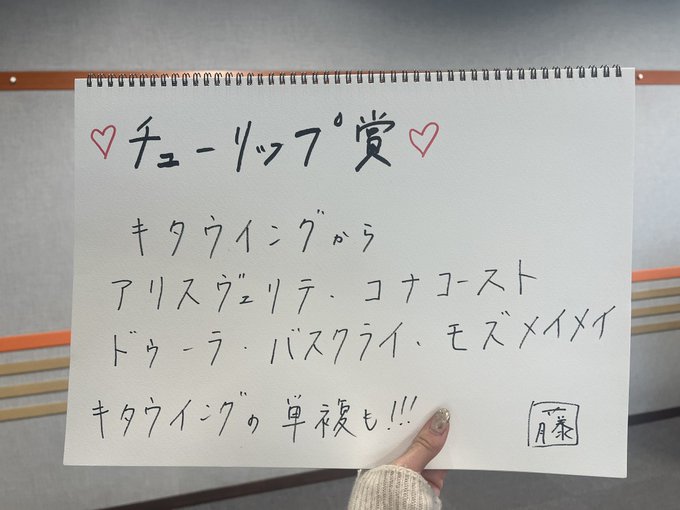 ♡チューリップ賞♡
キタウイングから
アリスヴェリテ・コナコースト
ドゥーラ・バスクライ・モズメイメイ
キタウイングの単複も!!!
藤